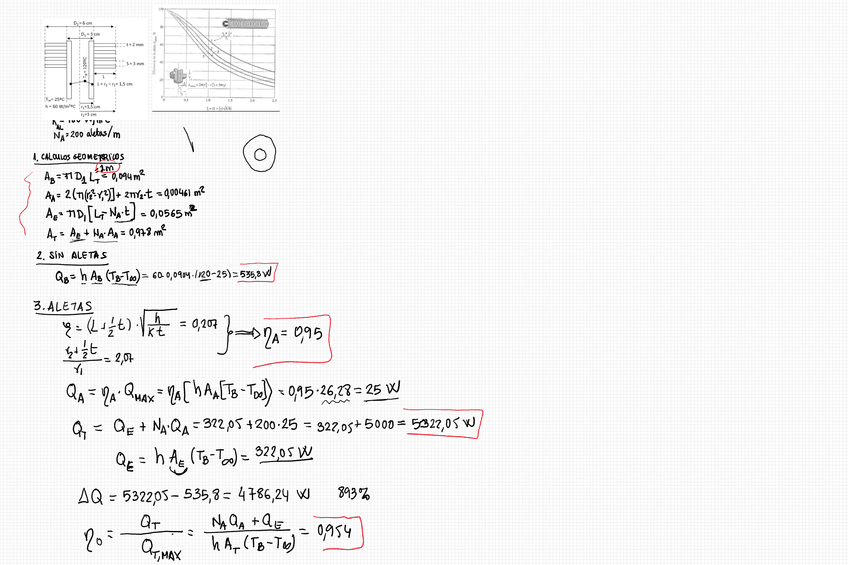 D₂= 6 cm
D₁= 3 cm
t = 2 mm
S = 3 mm
L
L = r₂ – r₁= 1,5 cm
T∞= 25ºC
h = 60 W/m²ºC
r₁=1,5cm
r₂=3 cm
N_A=200 aletas/m
1. CALCULOS GEOMETRICOS
1m
A_B = π D₁ L_T = 0,094 m²
A_A = 2(π(r₂²-r₁²)) + 2πr₂·t = 0,00461 m²
A_E = π D₁ [L_T - N_A·t] = 0,0565 m²
A_T = A_E + N_A·A_A = 0,978 m²
2. SIN ALETAS
Q_B = h A_B (T_B-T∞) = 60·0,0904·(120-25) = 535,8 W
3. ALETAS
ξ = (L+½t)·√(h/kt) = 0,207
(r₂+½t)/r₁ = 2,07
⇒ η_A = 0,95
Q_A = η_A·Q_MAX = η_A[h A_A [T_B-T∞]] = 0,95·26,28 = 25 W
Q_T = Q_E + N_A·Q_A = 322,05 + 200·25 = 322,05 + 5000 = 5322,05 W
Q_E = h A_E (T_B-T∞) = 322,05 W
ΔQ = 5322,05 - 535,8 = 4786,24 W 893%
η₀ = Q_T/Q_T,MAX = (N_A Q_A + Q_E)/(h A_T (T_B-T∞)) = 0,954